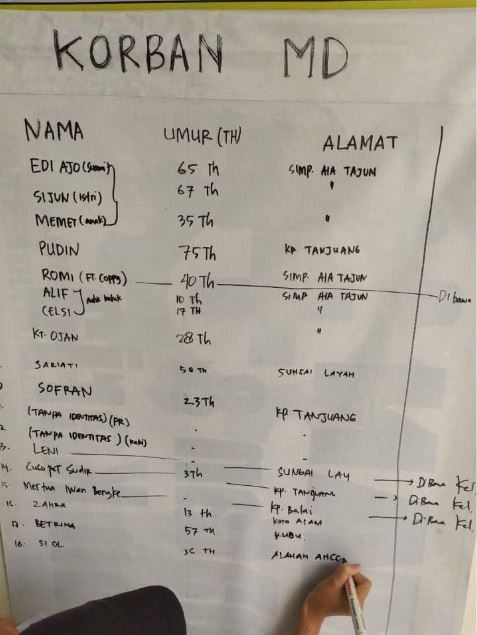 KORBAN MD
NAMA UMUR (TH) ALAMAT
EDI AJO (Suami) 65 Th SIMP. AIA TAJUN
SIJUN (Istri) 67 Th "
MEMET (anak) 35 Th "
PUDIN 75 Th KP TANJUANG
ROMI (FT. Copy) 40 Th SIMP. AIA TAJUN Di bawa
ALIF 10 Th SIMP AIA TAJUN
CELSI Adik kakak 17 TH "
KT. OJAN 28 Th "
SARIATI 50 Th SUNGAI LAYAH
SOFRAN 23 Th
(TANPA IDENTITAS) (PR) - KP TANJUANG
2. (TANPA IDENTITAS) ( ) - -
13. LENI - -
14. Cucu pet Sudir 3 Th SUNGAI LAY → Di Bawa Kel
15. Mertua Iwan Bengke - KP. TANJUANG → Di Bawa Kel.
16. ZAHRA 13 Th. Kp. Balai → Di Bawa Kel.
17. BETRINA 57 Th KOTO ALAM
KUBU.
18. SI OL 36 TH ALAHAN